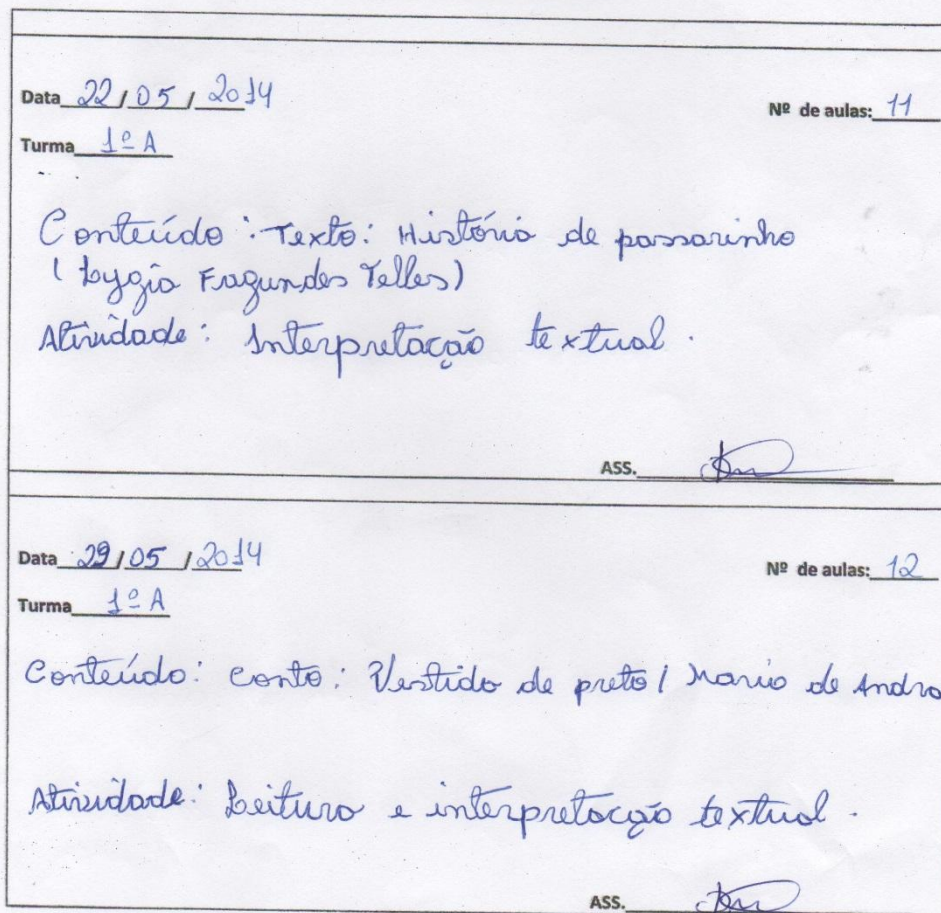 Data 22 / 05 / 2014 Nº de aulas: 11
Turma 1º A
Conteúdo: Texto: História de passarinho
(Lygia Fagundes Telles)
Atividade: Interpretação textual.
ASS.
Data 29 / 05 / 2014 Nº de aulas: 12
Turma 1º A
Conteúdo: Conto: Vestido de preto / Mario de Andra
Atividade: Leitura e interpretação textual.
ASS.